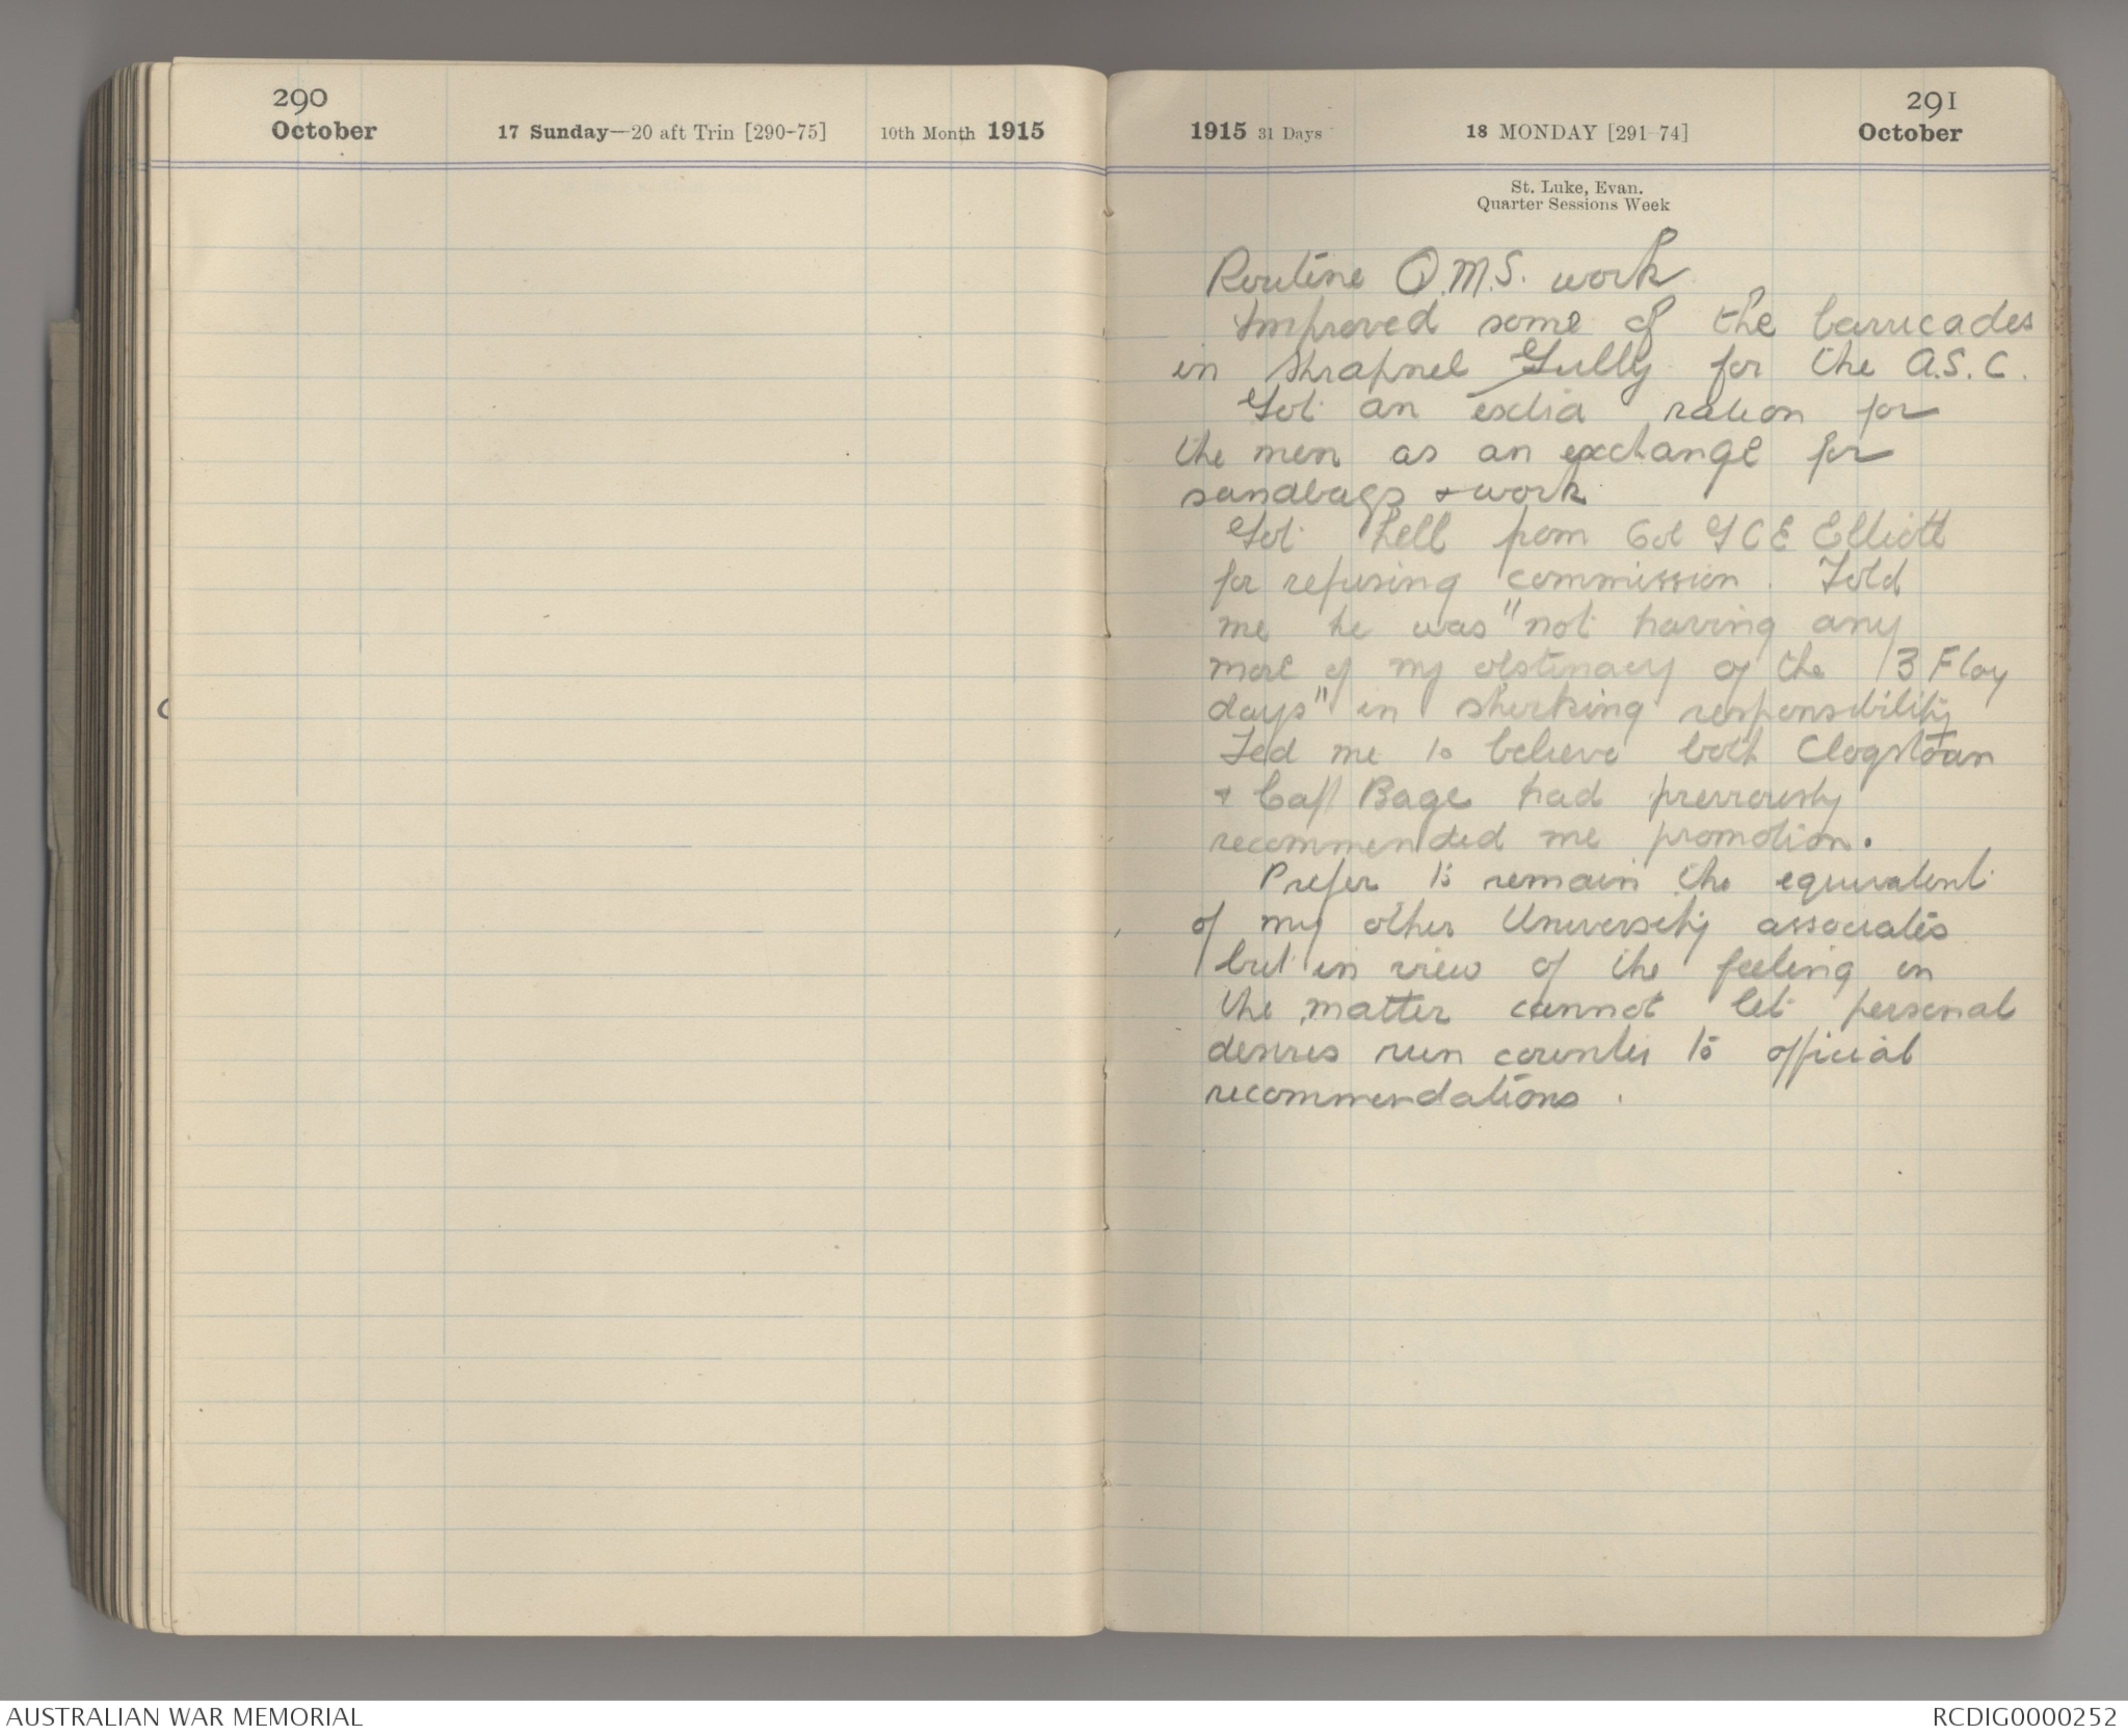 290
October
17 Sunday—20 aft Trin [290-75]
10th Month 1915
1915 31 Days
18 MONDAY [291-74]
291
October
St. Luke, Evan.
Quarter Sessions Week
Routine Q.M.S. work
Improved some of the barricades
in Shrapnel Gully for the A.S.C.
Got an extra ration for
the men as an exchange for
sandbags + work
Got hell from Col G C E Elliott
for refusing commission. Told
me he was "not having any
more of my obstinacy of the
days" in shirking responsibility
Led me to believe both Clogstoun
+ Capt Bage had previously
recommended me promotion.
Prefer to remain the equivalent
of my other University associates
but in view of the feeling in
the matter cannot let personal
desires run counter to official
recommendations.
AUSTRALIAN WAR MEMORIAL
RCDIG0000252